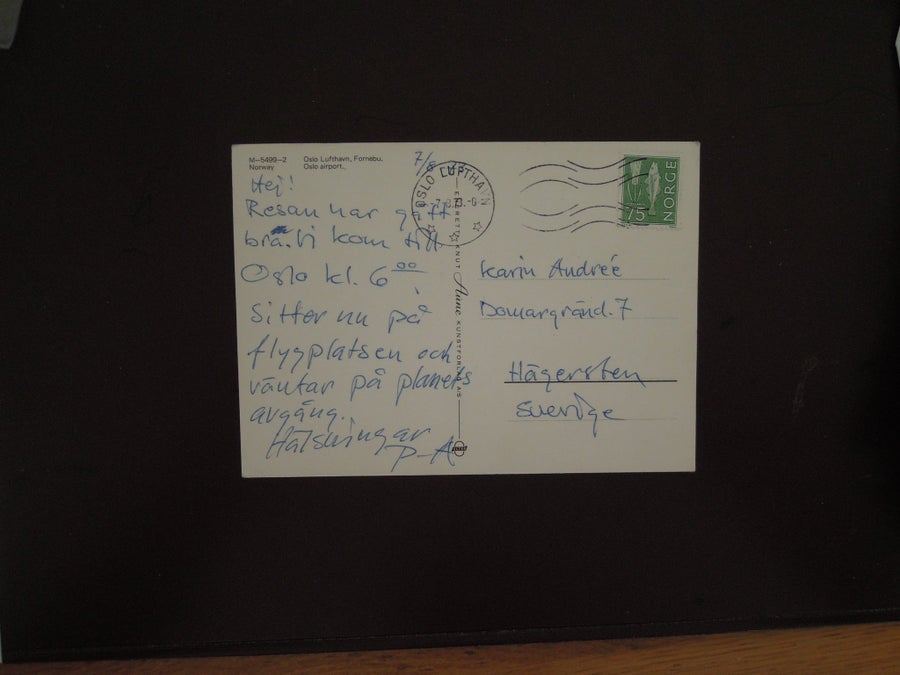 M–5499–2 Oslo Lufthavn, Fornebu.
Norway Oslo airport.
7/8
Hej!
Resan har gått
bra. Vi kom till
Oslo kl. 6 00
Sitter nu på
flygplatsen och
väntar på planets
avgång.
Hälsningar
P-A
OSLO LUFTHAVN
-7.8.73.-6
KNUT Aune KUNSTFORLAG AS
75 NORGE
Karin Andreé
Domargränd. 7
Hägersten
Sverige